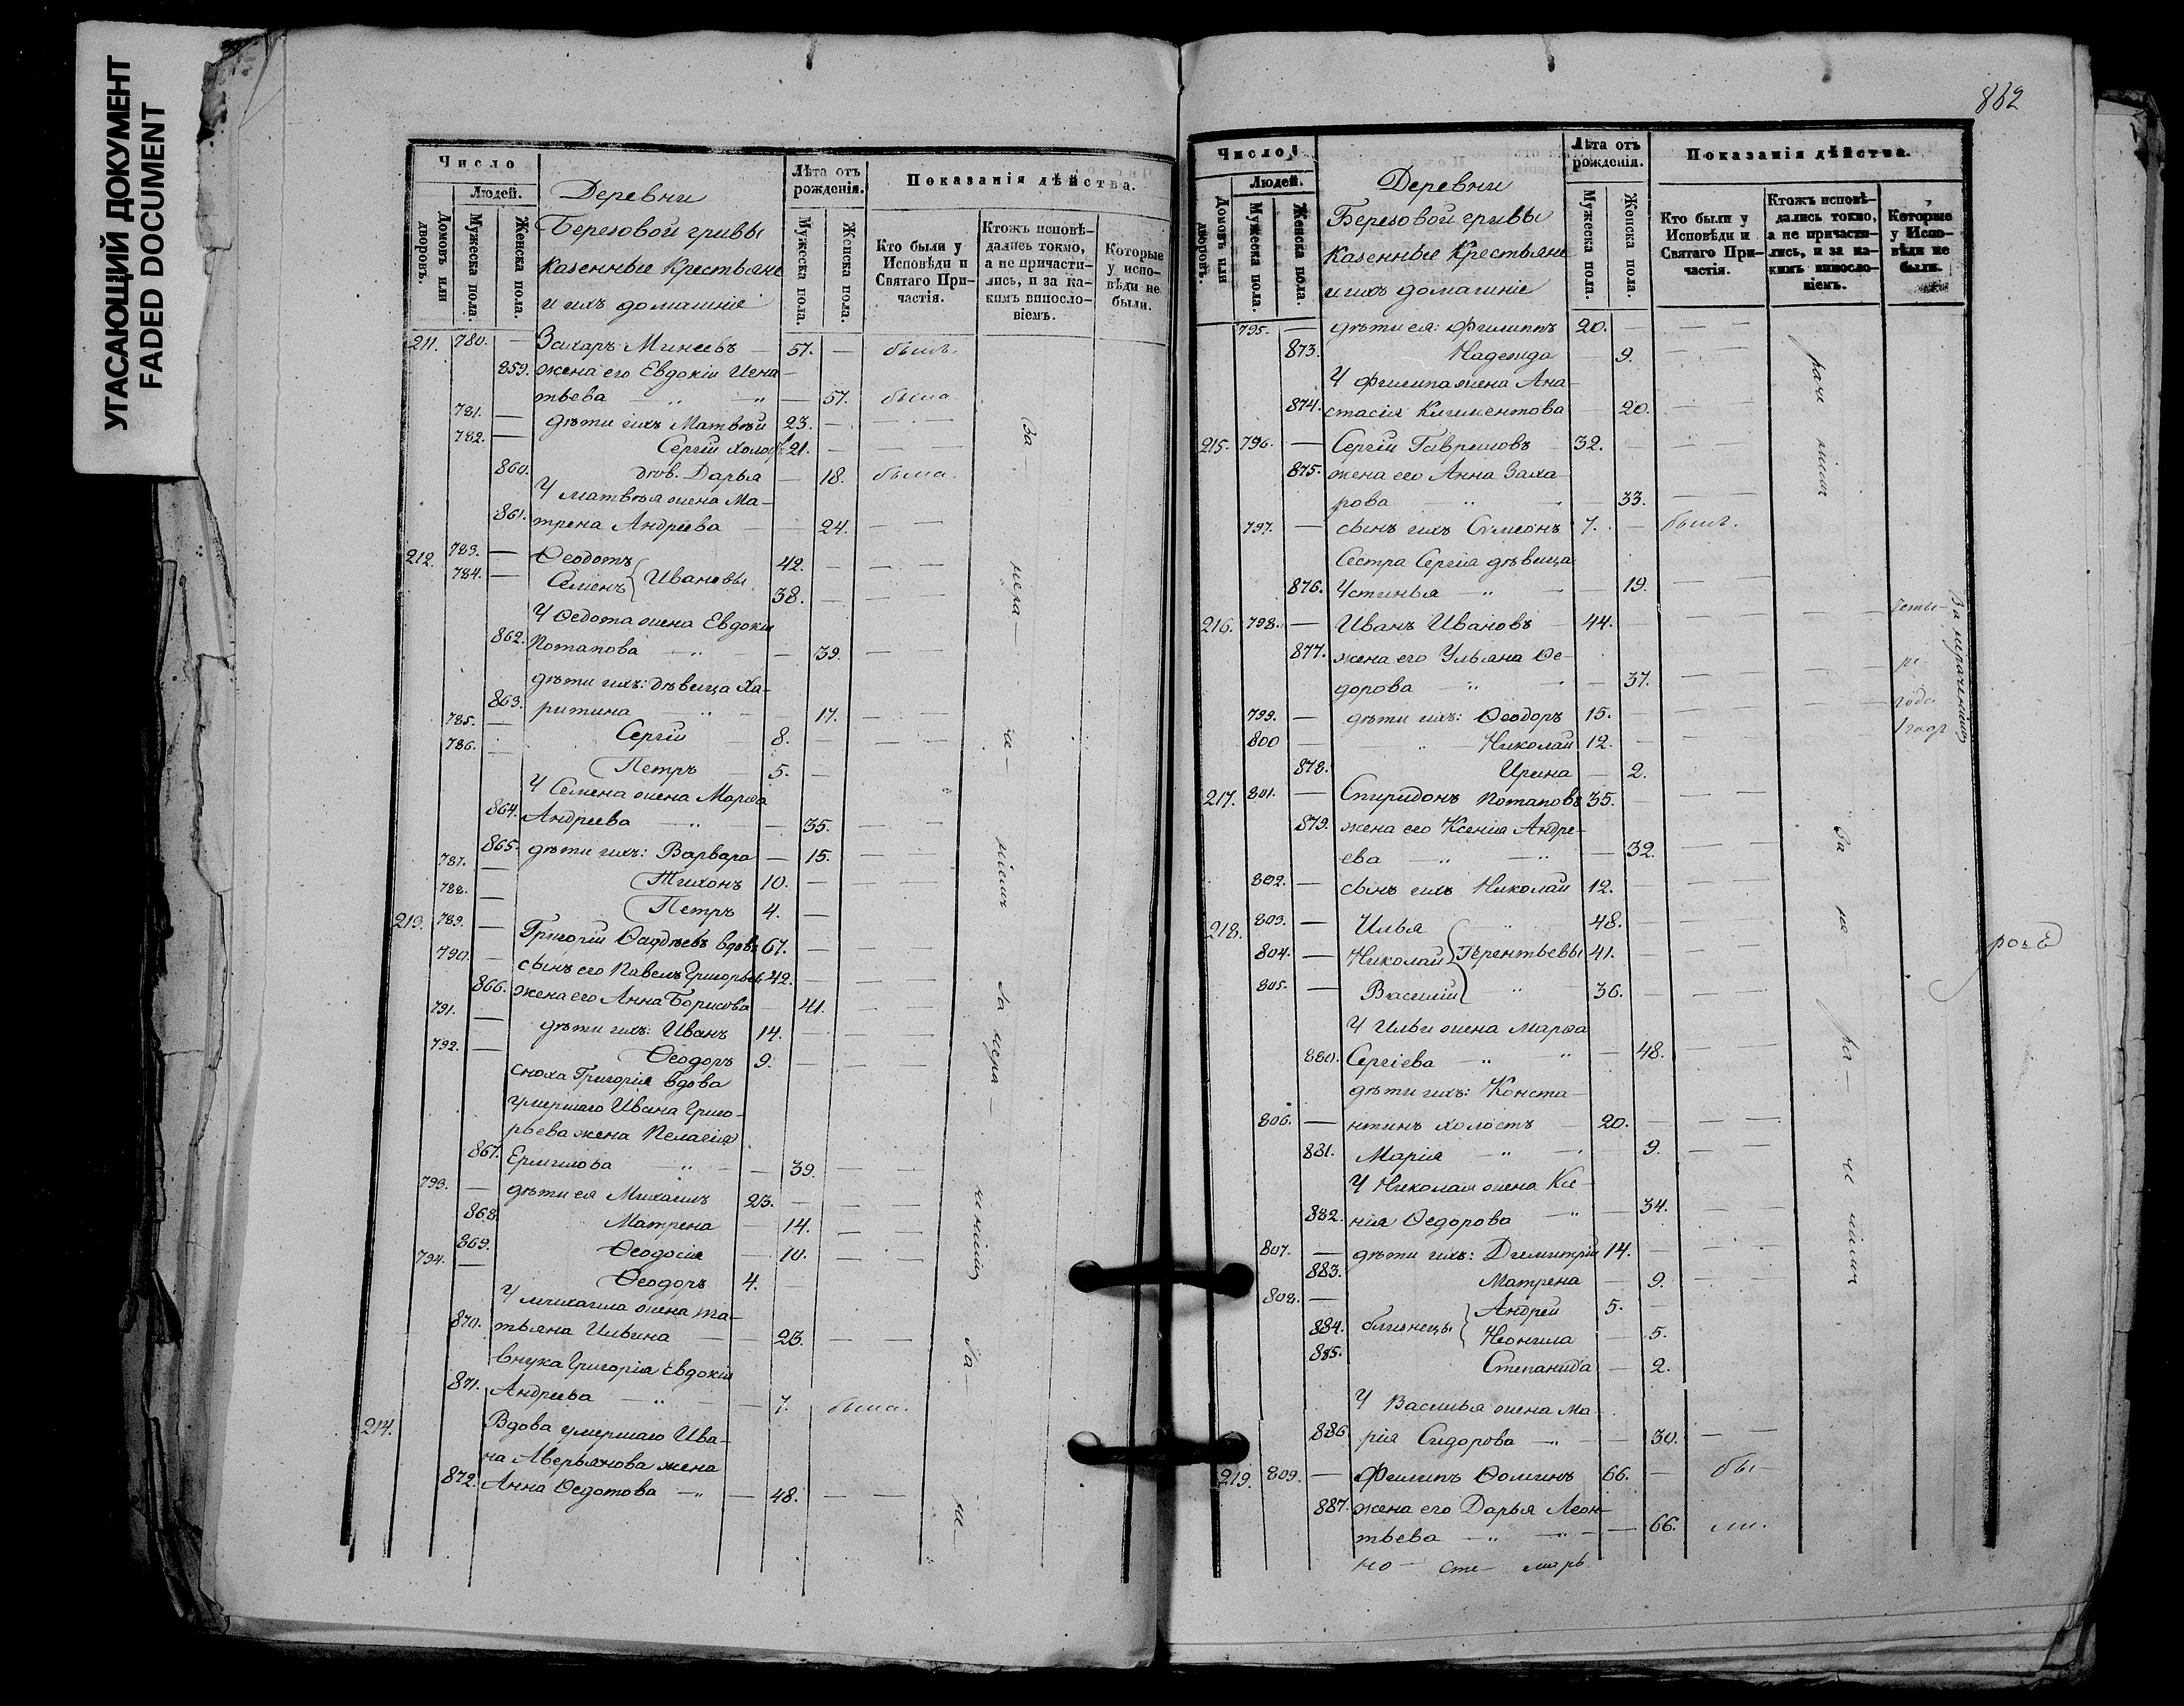 УГАСАЮЩИЙ ДОКУМЕНТ
FADED DOCUMENT
Число
Людей.
Домовъ или дворовъ.
Мужеска пола.
Женска пола.
Деревни
Березовой гривы
казенные Крестьяне
и ихъ домашніе
Лѣта отъ рожденія.
Мужеска пола.
Женска пола.
Показанія дѣйства.
Кто были у Исповѣди и Святаго Причастія.
Ктожъ исповѣдались токмо, а не причастились, и за какимъ винословіемъ.
Которые у исповѣди не были.
211. 780. — Захаръ Минеевъ — 57. — былъ.
859. жена его Евдокія Игна-
тьева — „ — „ — 57. была
781. — дѣти ихъ Матвѣй 23. — — —
782. — Сергій холос. 21. — — —
860. дѣв. Дарья — 18. была.
У Матвѣя жена Ма-
861. трена Андреева — — 24. — —
212. 783. — Ѳеодотъ 42. — — —
784. — Семенъ } Ивановы 38. — — —
У Ѳедота жена Евдокія
862. Потапова — „ — — 39. — —
дѣти ихъ: дѣвица Ха-
863. ритина — „ — — 17. — —
785. — Сергій 8. — — —
786. — Петръ 5. —
У Семена жена Марѳа
864. Андреева — „ — — 35. — —
865. дѣти ихъ: Варвара — 15. — —
787. — Тихонъ 10. — — —
788. — Петръ 4. —
213. 789. — Григорій Ѳаддѣевъ вдовъ 67. — — —
790. — сынъ его Павелъ Григорьевъ 42. — — —
866. жена его Анна Борисова — 41. — —
791. — дѣти ихъ: Иванъ 14. — — —
792. — Ѳеодоръ 9. — — —
сноха Григорія вдова
умершаго Ивана Григо-
рьева жена Пелагія
867. Ермилова „ — — 39. — —
793. — дѣти ея Михаилъ 23. — — —
868. Матрена — 14. — —
869. Ѳеодосія — 10. — —
794. — Ѳеодоръ 4. —
У Михаила жена Та-
870. тьяна Ильина — — 23. — —
внука Григорія Евдокія
871. Андреева — „ — — 7. была.
214. Вдова умершаго Ива-
на Аверьянова жена
872. Анна Ѳедотова — „ — 48. — —
За —
нера —
че —
ніемъ
За нера —
ченіемъ
За —
не —
862
Число
Людей.
Домовъ или дворовъ.
Мужеска пола.
Женска пола.
Деревни
Березовой гривы
казенные Крестьяне
и ихъ домашніе
Лѣта отъ рожденія.
Мужеска пола.
Женска пола.
Показанія дѣйства.
Кто были у Исповѣди и Святаго Причастія.
Ктожъ исповѣдались токмо, а не причастились, и за какимъ винословіемъ.
Которые у Исповѣди не были.
795. — дѣти ея: Филиппъ 20. — — —
873. Надежда — 9. — —
У Филипа жена Ана-
874. стасія Климентова — 20. — —
215. 796. — Сергій Гавриловъ 32. — — —
875. жена его Анна Заха
рова „ „ — 33. — —
797. — сынъ ихъ Симеонъ 7. — былъ.
Сестра Сергія дѣвица
876. Устинья — „ — — 19. — —
216. 798. — Иванъ Ивановъ 44. — — — — — четы-
877. жена его Ульяна Ѳе-
дорова — „ „ — 37. — — — — ре
799. — дѣти ихъ: Ѳеодоръ 15. — — — — — года
800 — „ — Николай 12. — — — 1 годъ
878. Ирина — 2.
217. 801. — Спиридонъ Потаповъ 35. — — —
879. жена его Ксенія Андре-
ева — „ — „ — 32. — —
802. — сынъ ихъ Николай 12. — — —
218. 803. — Илья „ 48. — — —
804. — Николай } Терентьевы 41. — — —
805. — Василій „ 36. — — —
У Ильи жена Марѳа
880. Сергіева — „ „ — 48. — —
дѣти ихъ: Конста-
806. — нтинъ холостъ — 20. — — —
881. Марія — „ — 9. — —
У Николая жена Ксе-
882. нія Ѳедорова — „ — 34. — —
807. — дѣти ихъ: Димитрій 14. — — —
883. Матрена — 9. — —
808. — близнецы { Андрей 5. —
884. Неонила — 5.
885. Степанида — 2.
У Василья жена Ма-
886. рія Сидорова — „ — — 30. — —
219. 809. — Филипъ Ѳоминъ 66. — бы-
887. жена его Дарья Леон-
тьева — „ — „ — — 66. ли.
раче
ніемъ
За нераченіемъ
За
не —
ра —
че
ніемъ
но — сте — марь